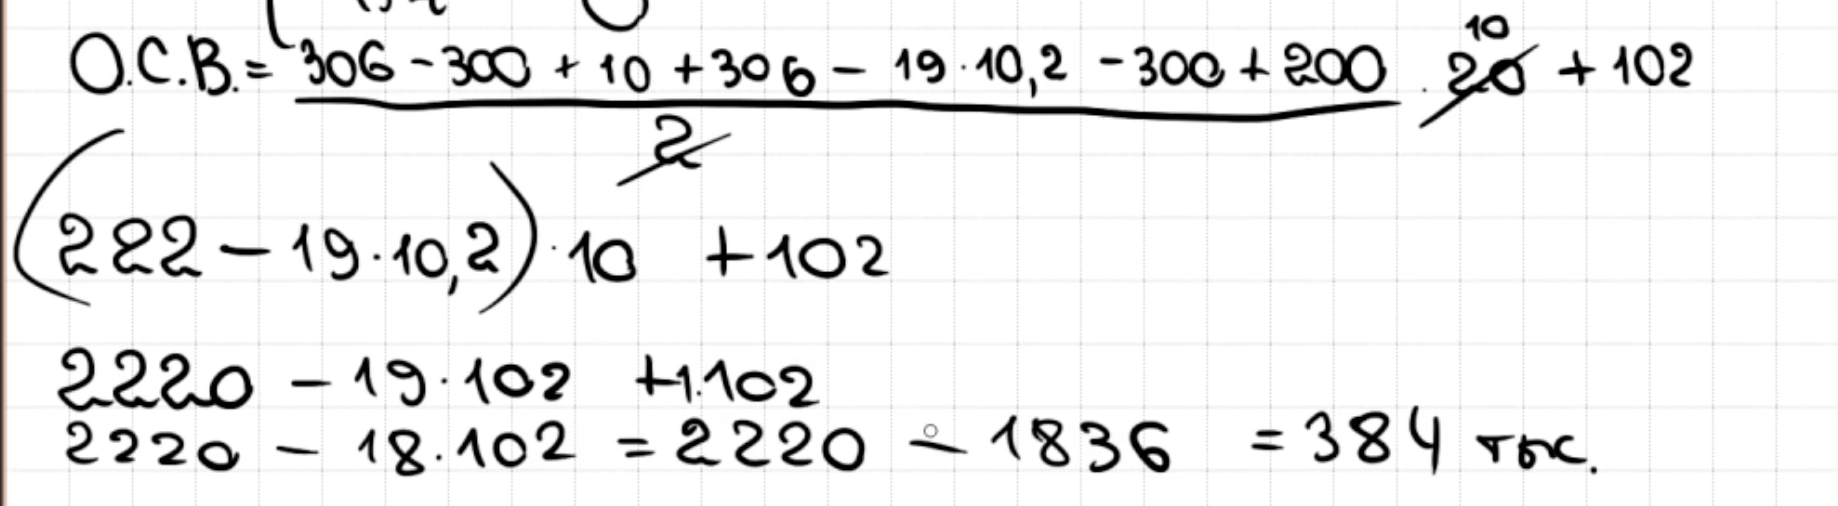 О.С.В. = 306 - 300 + 10 + 306 - 19 · 10,2 - 300 + 200 · 20 + 102
10
2
(222 - 19 · 10,2) · 10 + 102
2220 - 19 · 102 + 1 · 102
2220 - 18 · 102 = 2220 - 1836 = 384 тыс.